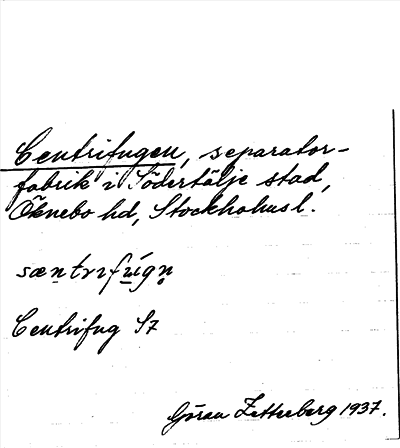 Centrifugen, separator-
fabrik i Södertälje stad,
Öknebo hd, Stockholms l.
sæntrifúgn̥
Centrifug S7
Göran Zetterberg 1937.